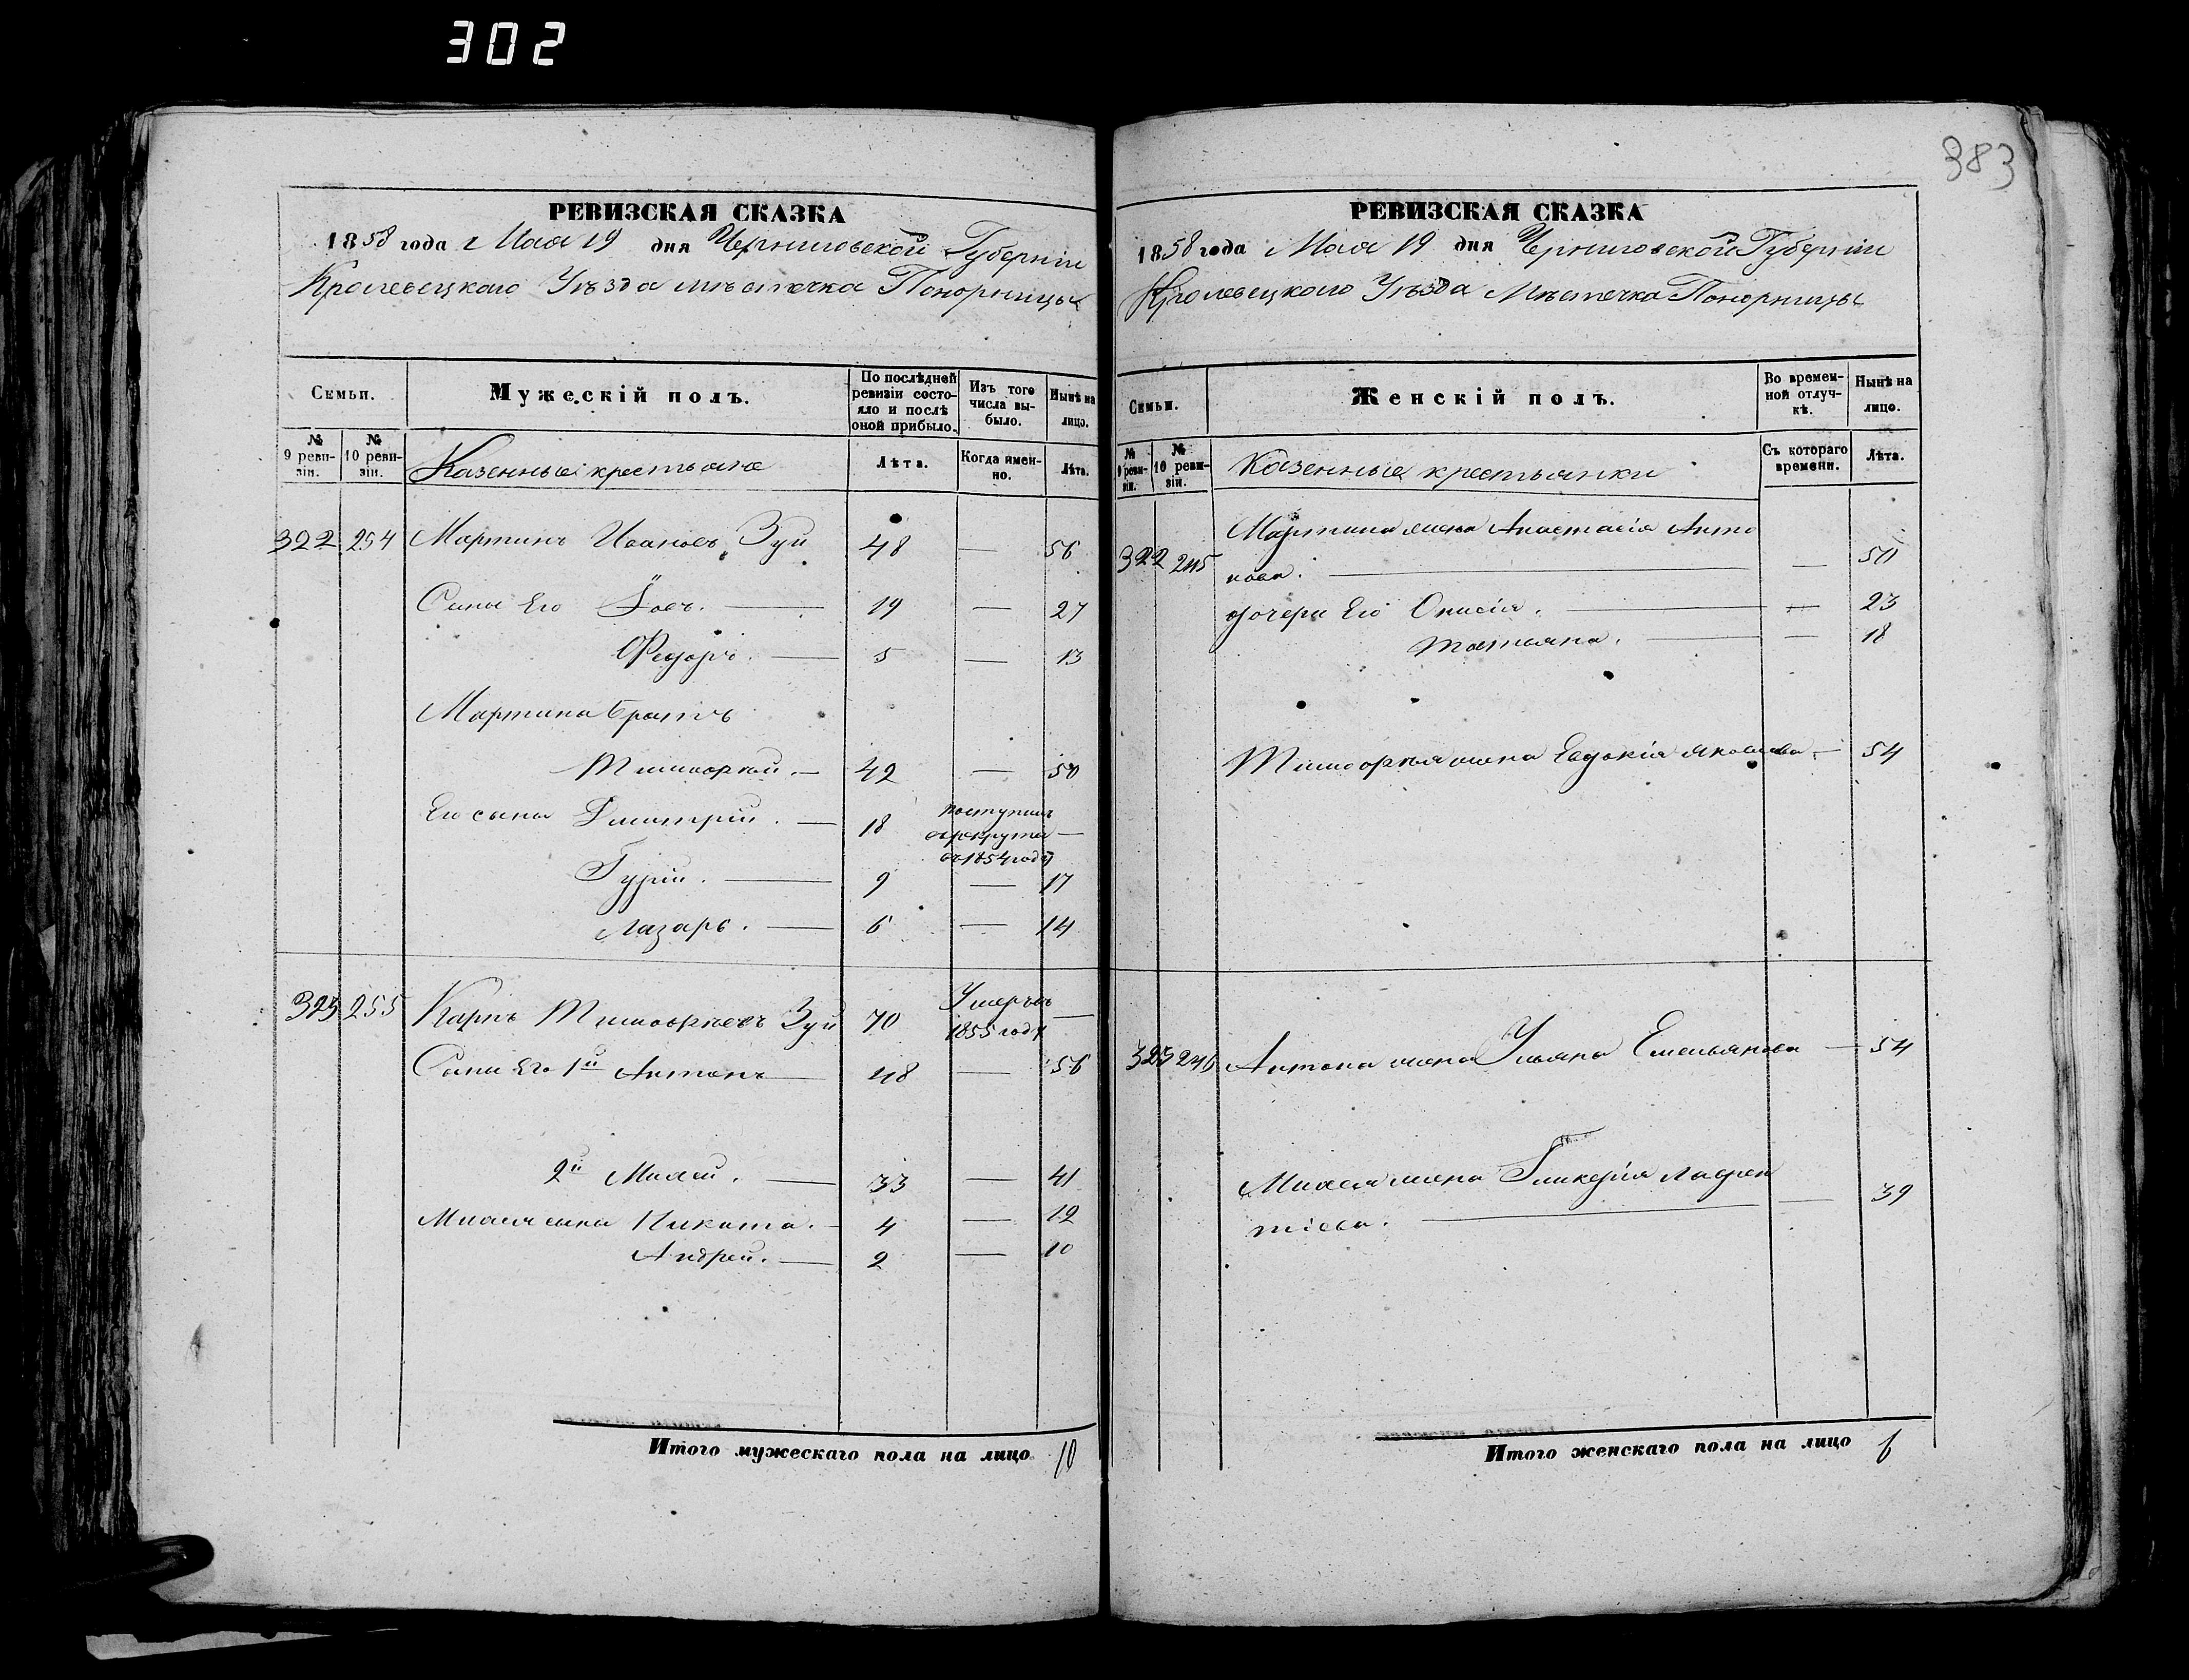 302
383
РЕВИЗСКАЯ СКАЗКА
1858 года Мая 19 дня Черниговской Губерніи
Кролевецкаго Уѣзда мѣстечка Понорницы
Семьи.
Мужескій полъ.
По послѣдней ревизіи состояло и послѣ оной прибыло.
Изъ того числа выбыло.
Нынѣ на лицо.
№ 9 ревизіи.
№ 10 ревизіи.
Казенные крестьяне
Лѣта.
Когда именно.
Лѣта.
322 254 Мартинъ Ивановъ Зуй 48 — 56
Сыны Его Іовъ. — 19 — 27
Федоръ. — 5 — 13
Мартина братъ
Тимофей. — 42 — 50
Его сыны Дмитрий. — 18 поступилъ
въ рекруты —
въ 1854 году
Гурій. — 9 — 17
Лазарь. — 6 — 14
323 255 Карпъ Тимофѣевъ Зуй 70 Умеръ въ
1855 году —
Сыны Его 1й Антонъ — 48 — 56
2й Михей. — 33 — 41
Михея сыны Никита. — 4 — 12
Андрей. — 2 — 10
Итого мужескаго пола на лицо 10
РЕВИЗСКАЯ СКАЗКА
1858 года Мая 19 дня Черниговской Губерніи
Кролевецкаго Уѣзда Мѣстечка Понорницы
Семьи.
Женскій полъ.
Во временной отлучкѣ.
Нынѣ на лицо.
№ 9 ревизіи.
№ 10 ревизіи.
Казенные крестьянки
Съ котораго времени.
Лѣта.
Мартина жена Анастасія Анто
322 245 нова. — — 50
дочери Его Онисія. — — 23
Татьяна. — — 18
Тимофея жена Евдокія Яковлева — 54
323 246 Антона жена Ульяна Емельянова — 54
Михея жена Гликерія Лаврен
тіева. — — 39
Итого женскаго пола на лицо 6